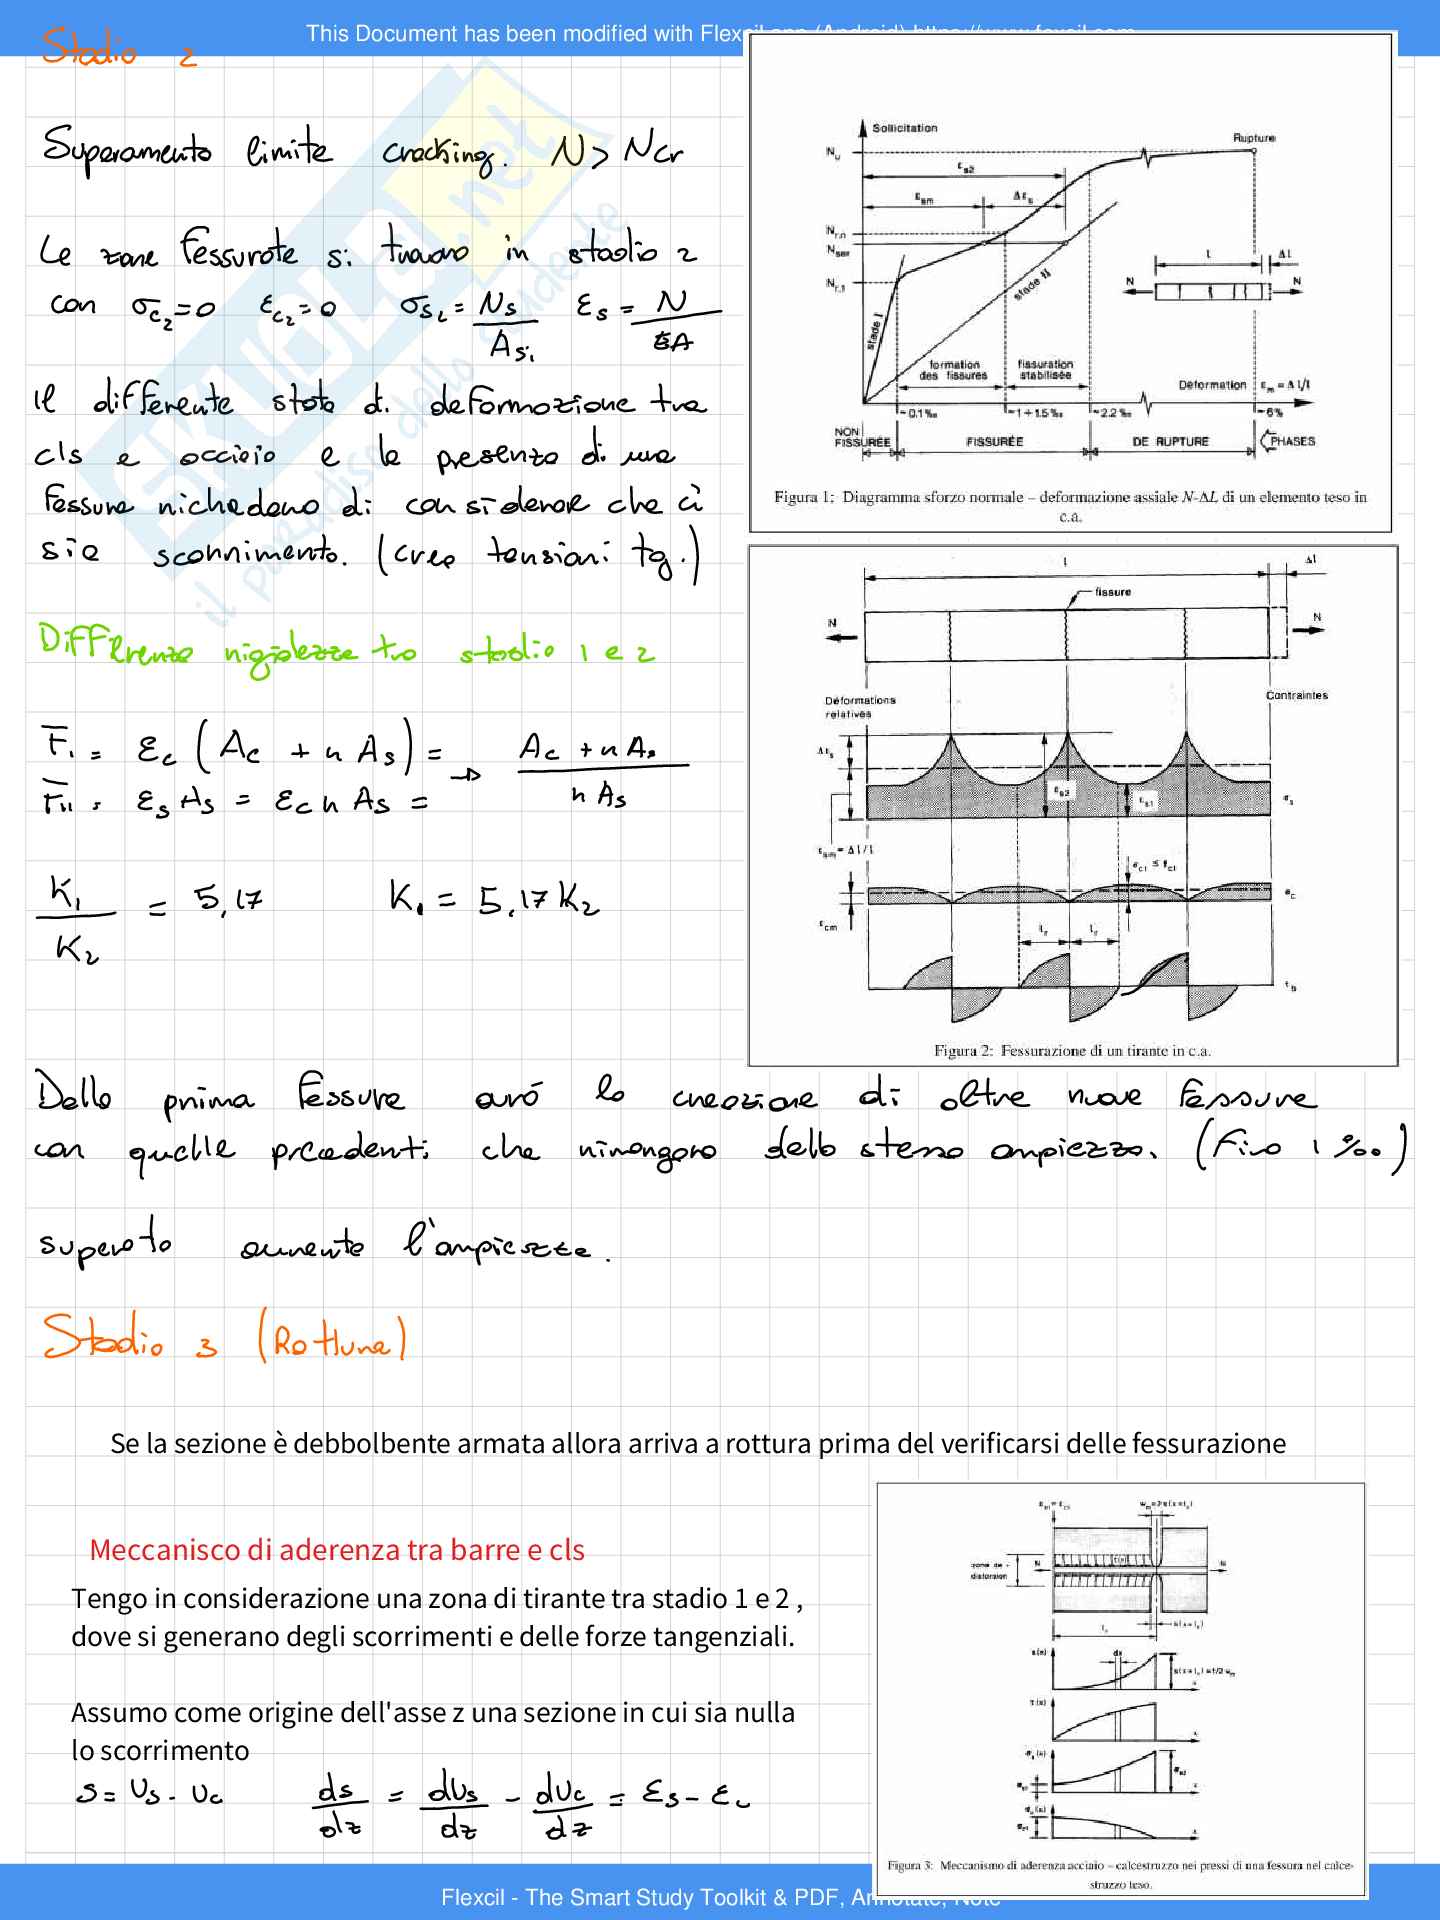 This Document has been modified with Flexcil app (Android) https://www.flexcil.com
Stadio 2
Superamento limite cracking. N > Ncr
Le zone fessurate si trovano in stadio 2
con σc₂=0 εc₂=0 σs₂ = Ns/As, εs = N/EA
Il differente stato di deformazione tra
cls e acciaio e la presenza di una
fessura richiedono di considerare che ci
sia scorrimento. (crea tensioni tg.)
Differenza rigidezza tra stadio 1 e 2
F₁ = Ec (Ac + n As) = → Ac + n As / n As
F₁₁ = Es As = Ec n As =
K₁/K₂ = 5,17 K₁ = 5,17 K₂
Sollicitation
Rupture
Nu
εs2
εsm Δεs
Nr,n
Nser
Nr,1
stade I
stade II
l Δl
N N
formation des fissures
fissuration stabilisée
Déformation εm = Δl/l
~0.1‰ ~1÷1.5‰ ~2.2‰ ~6%
NON FISSURÉE FISSURÉE DE RUPTURE PHASES
Figura 1: Diagramma sforzo normale – deformazione assiale N-ΔL di un elemento teso in
c.a.
l Δl
fissure
N N
Déformations relatives
Contraintes
Δεs
εs2 εs1
σs
εsm = Δl/l
σc1 ≤ fct
σc
εcm
lr lr
τb
Figura 2: Fessurazione di un tirante in c.a.
Dalla prima fessura avrò la creazione di altre nuove fessure
con quelle precedenti che rimangono della stessa ampiezza. (Fino 1‰)
superato aumenta l'ampiezza.
Stadio 3 (Rottura)
Se la sezione è debbolbente armata allora arriva a rottura prima del verificarsi delle fessurazione
Meccanisco di aderenza tra barre e cls
Tengo in considerazione una zona di tirante tra stadio 1 e 2 ,
dove si generano degli scorrimenti e delle forze tangenziali.
Assumo come origine dell'asse z una sezione in cui sia nulla
lo scorrimento
s = Us - Uc ds/dz = dUs/dz - dUc/dz = εs - εc
zone de distorsion
N N
s(x)
dx
τ(x)
σs(x)
σs2
Figura 3: Meccanismo di aderenza acciaio – calcestruzzo nei pressi di una fessura nel calce-
struzzo teso.
Flexcil - The Smart Study Toolkit & PDF, Annotate, Note
SKUOLA.net
il paradiso dello studente